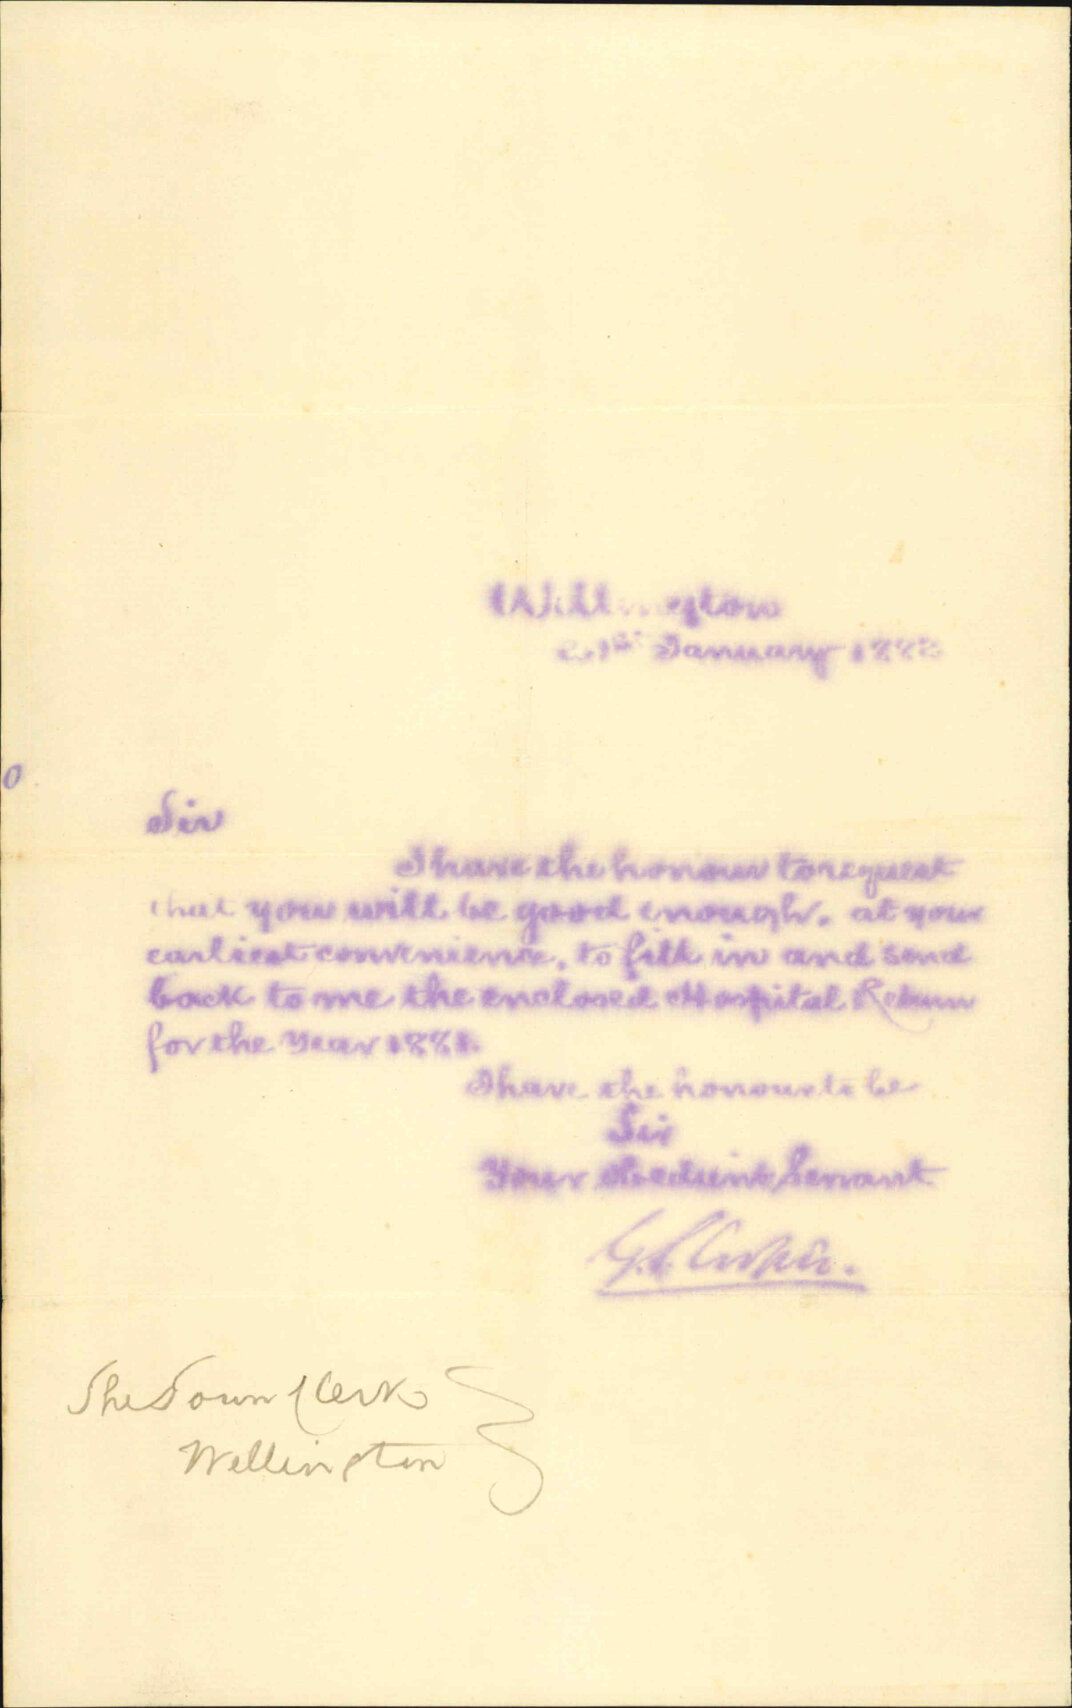 Wellington
21st January 1882
0
Sir
I have the honour to request
that you will be good enough, at your
earliest convenience, to fill in and send
back to me the enclosed Hospital Return
for the Year 1881.
I have the honour to be
Sir
Your Obedient Servant
The Town Clerk
Wellington